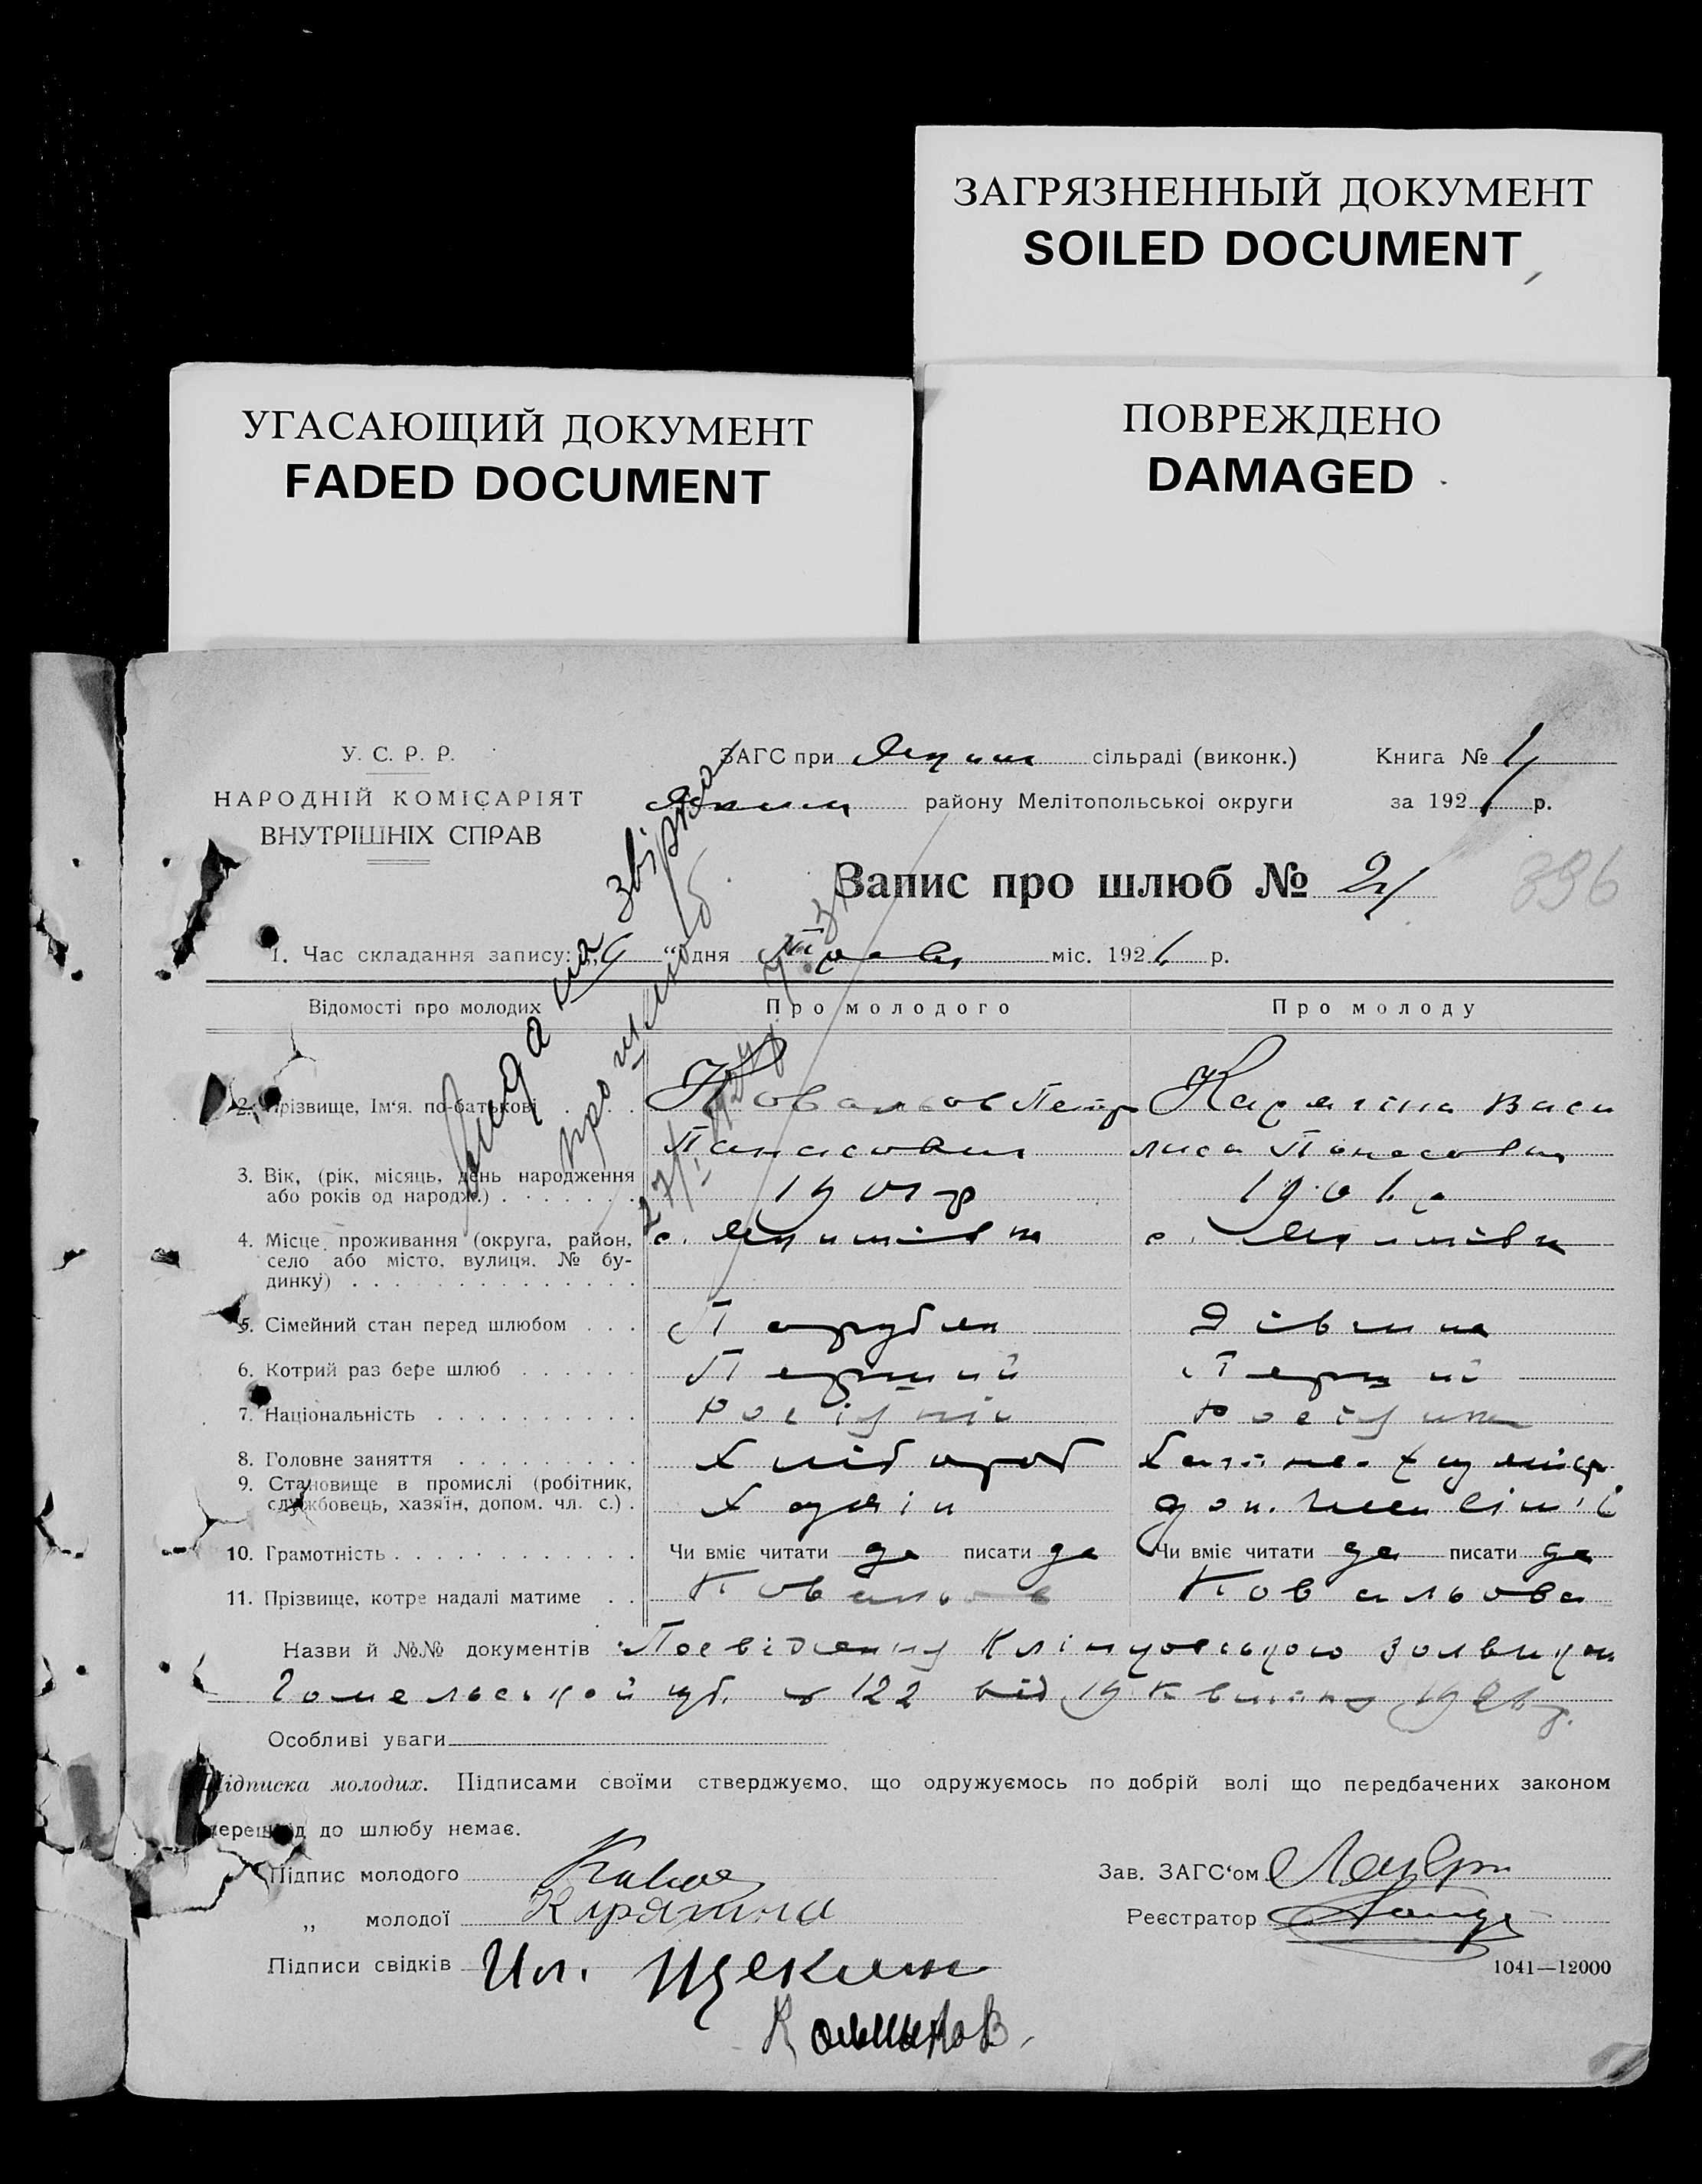 ЗАГРЯЗНЕННЫЙ ДОКУМЕНТ
SOILED DOCUMENT
УГАСАЮЩИЙ ДОКУМЕНТ
FADED DOCUMENT
ПОВРЕЖДЕНО
DAMAGED
У. С. Р. Р.
НАРОДНІЙ КОМІСАРІЯТ
ВНУТРІШНІХ СПРАВ
ЗАГС при сільраді (виконк.)
Книга №
району Мелітопольської округи
за 192 р.
Запис про шлюб № 21
396
1. Час складання запису: „ “ дня міс. 192 р.
Видана звірка
про шлюб
Відомості про молодих
Про молодого
Про молоду
2. Прізвище, Ім'я. по-батькові . . .
Ковальов Петр
Панасович
Карягіна Васи
лиса Панасовна
3. Вік, (рік, місяць, день народження
або років од народж.) . . . . . . .
1901 р
1901 р
4. Місце проживання (округа, район,
село або місто, вулиця. № бу-
динку) . . . . . . . . . . . . . .
с. Якимівка
с. Якимівка
5. Сімейний стан перед шлюбом . . .
Парубок
Дівчина
6. Котрий раз бере шлюб . . . . . .
Перший
Перший
7. Національність . . . . . . . . . .
8. Головне заняття . . . . . . . . .
Хлібороб
9. Становище в промислі (робітник,
службовець, хазяїн, допом. чл. с.) .
Хазяін
доп. член сім'ї
10. Грамотність . . . . . . . . . . . .
Чи вміє читати да писати да
Чи вміє читати да писати да
11. Прізвище, котре надалі матиме . .
Ковальов
Ковальова
Назви й №№ документів Посвідчення Клінцовського
Гомельської губ. № 122 від 19 квітня 1926 р.
Особливі уваги
Підписка молодих. Підписами своїми стверджуємо, що одружуємось по добрій волі що передбачених законом
перешкод до шлюбу немає.
Підпис молодого
Зав. ЗАГС'ом
„ молодої Карягина
Реєстратор
Підписи свідків Ил. Щекин
1041—12000